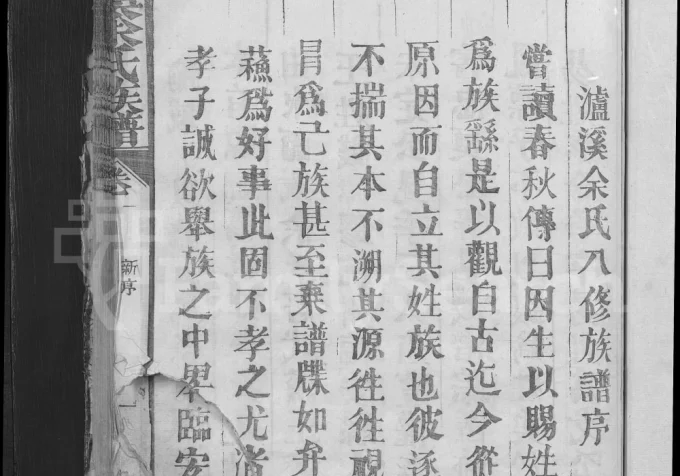 瀘溪余氏八修族譜序
嘗讀春秋傳曰因生以賜姓
爲族繇是以觀自古迄今從
原因而自立其姓族也彼逐
不揣其本不溯其源徃徃視
冐爲己族甚至棄譜牒如弁
蘓爲好事此固不孝之尤
孝子誠欲舉族之中畢臨
余氏族譜
卷一
新序
一